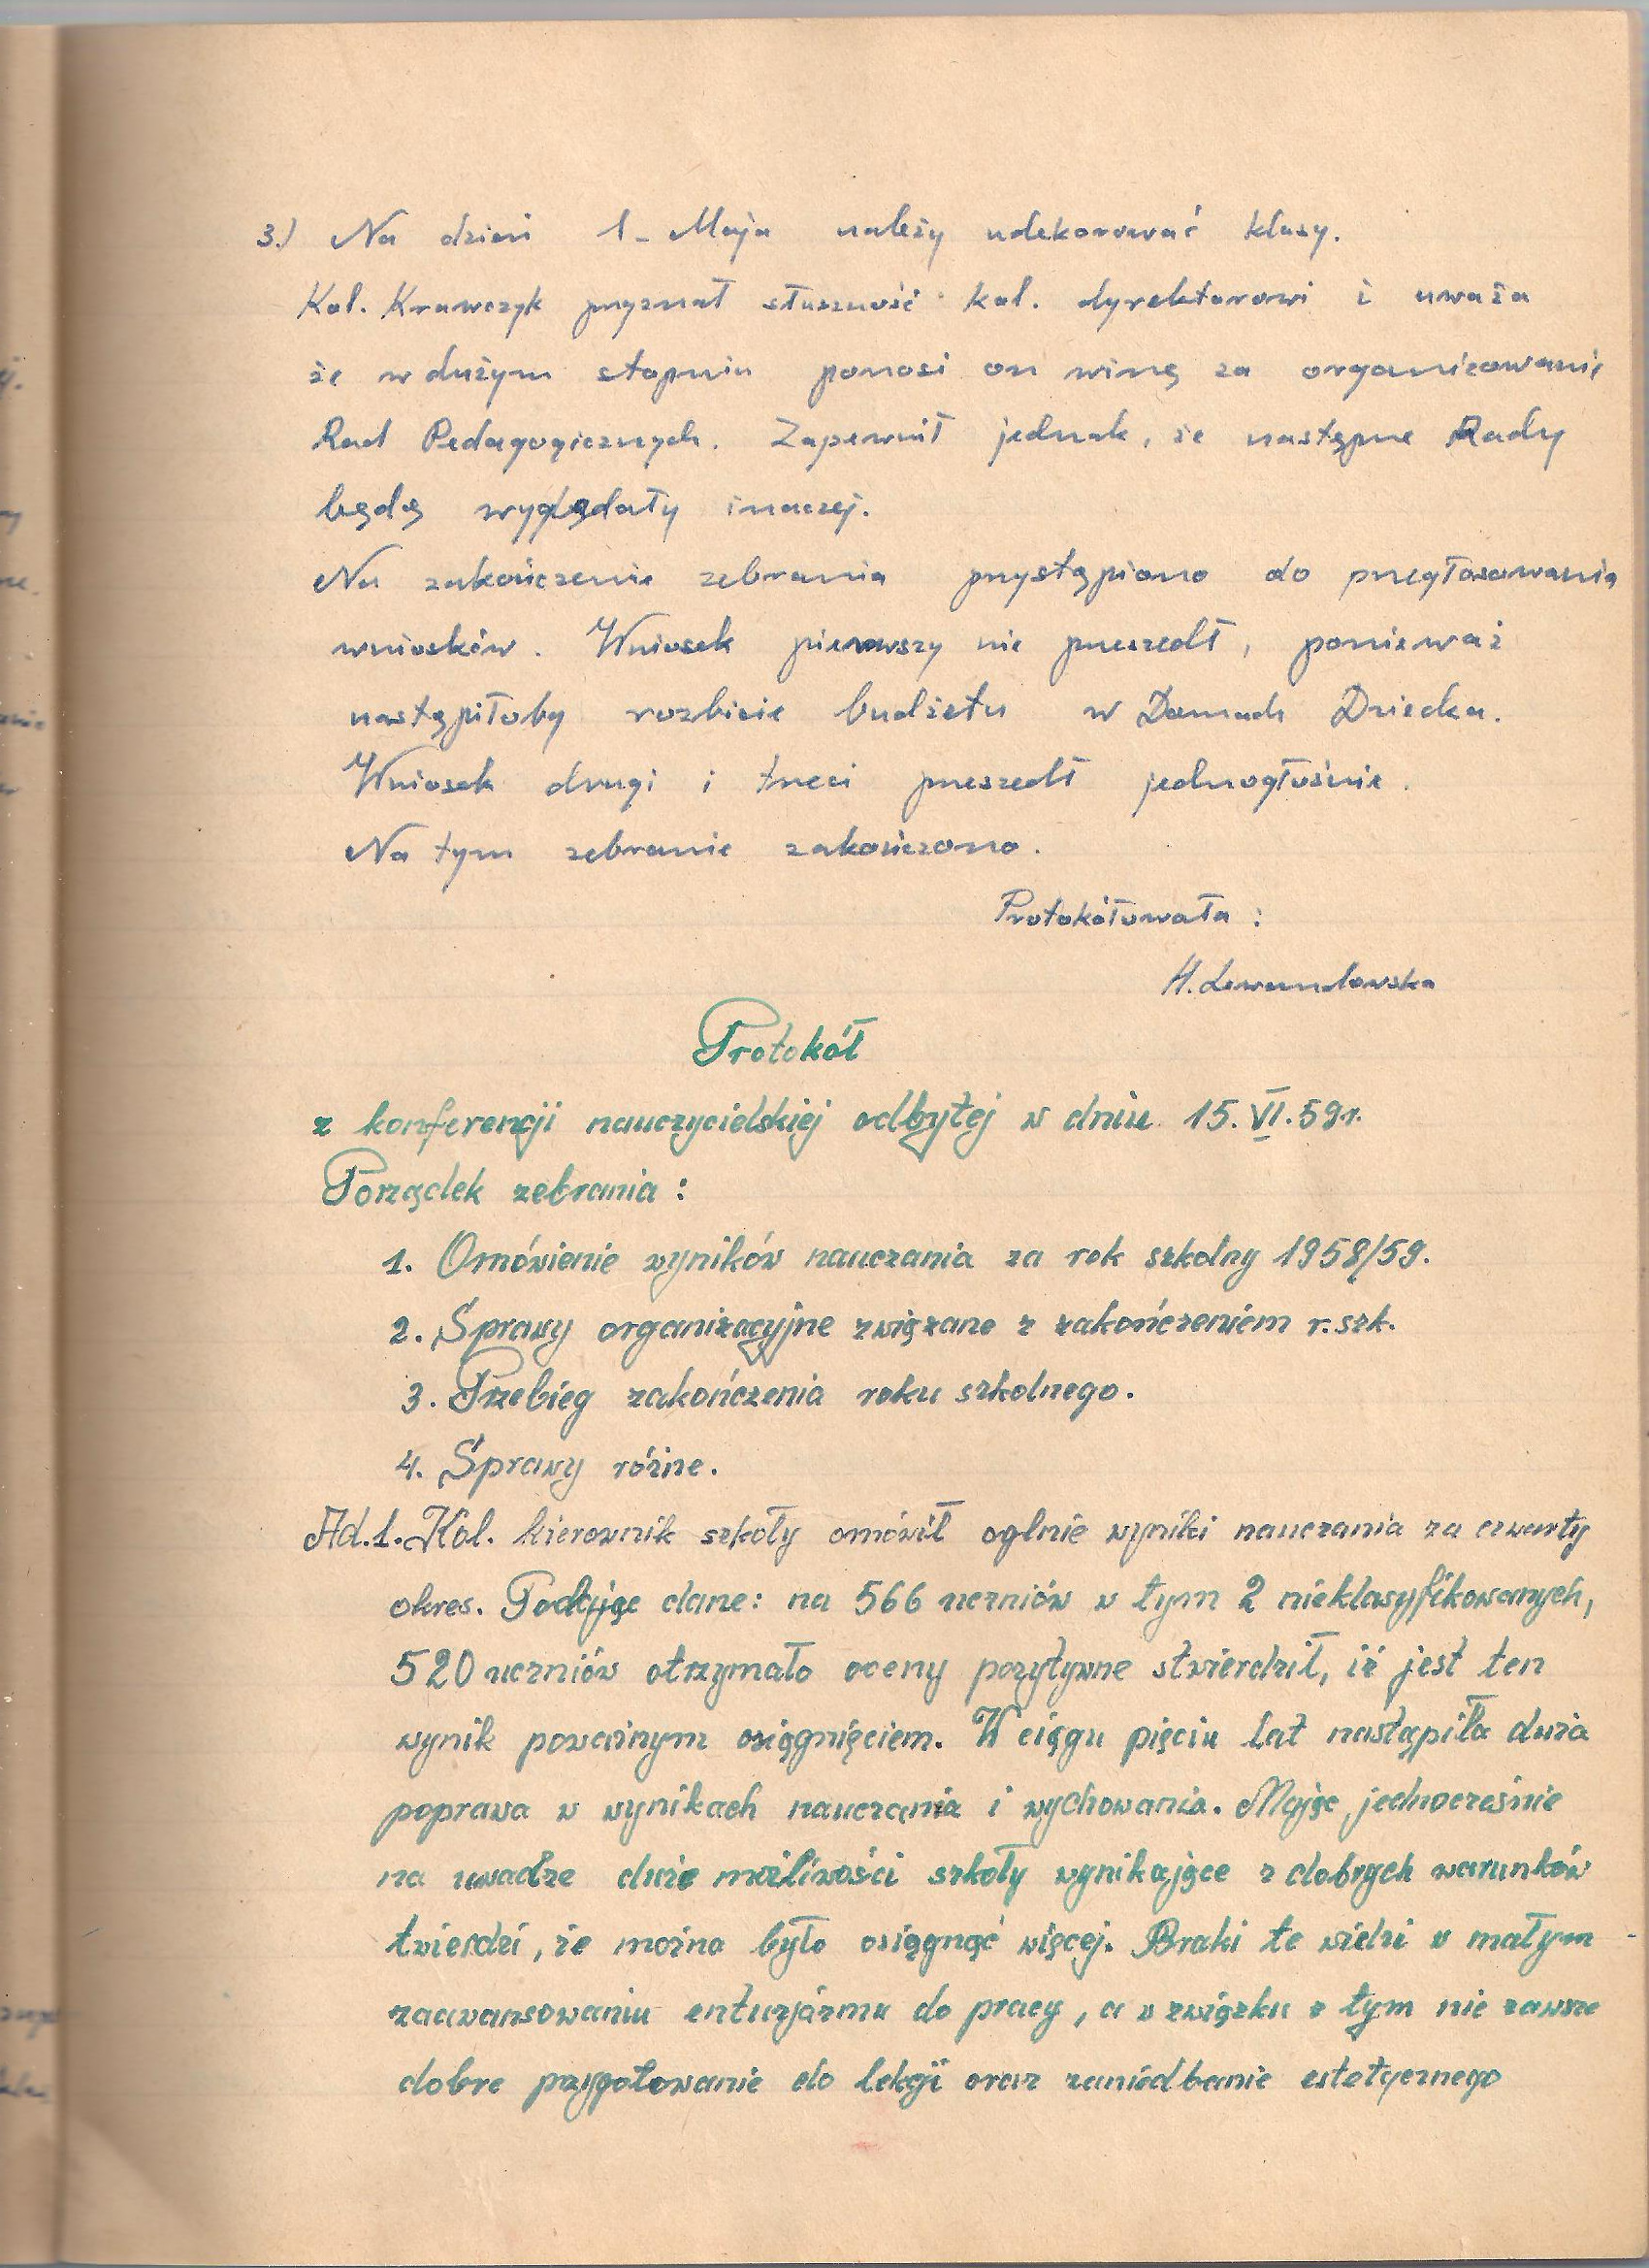 3.) Na dzień 1-Maja należy udekorować klasy.
Kol. Krawczyk przyznał słuszność kol. dyrektorowi i uważa
że w dużym stopniu ponosi on winę za organizowanie
Rad Pedagogicznych. Zapewnił jednak, że następne Rady
będą wyglądały inaczej.
Na zakończenie zebrania przystąpiono do przegłosowania
wniosków. Wniosek pierwszy nie przeszedł, ponieważ
nastąpiłoby rozbicie budżetu w Domach Dziecka.
Wniosek drugi i trzeci przeszedł jednogłośnie.
Na tym zebranie zakończono.
Protokółowała :
H. Lewandowska
Protokół
z konferencji nauczycielskiej odbytej w dniu 15.VI.59r.
Porządek zebrania :
1. Omówienie wyników nauczania za rok szkolny 1958/59.
2. Sprawy organizacyjne związane z zakończeniem r. szk.
3. Przebieg zakończenia roku szkolnego.
4. Sprawy różne.
Ad.1. Kol. kierownik szkoły omówił oglnie wyniki nauczania za czwarty
okres. Podając dane: na 566 uczniów w tym 2 nieklasyfikowanych,
520 uczniów otrzymało oceny pozytywne stwierdził, iż jest ten
wynik poważnym osiągnięciem. W ciągu pięciu lat nastąpiła duża
poprawa w wynikach nauczania i wychowania. Mając jednocześnie
na uwadze duże możliwości szkoły wynikające z dobrych warunków
twierdzi, że można było osiągnąć więcej. Braki te widzi w małym
zaawansowaniu entuzjazmu do pracy, a w związku z tym nie zawsze
dobre przygotowanie do lekcji oraz zaniedbanie estetycznego